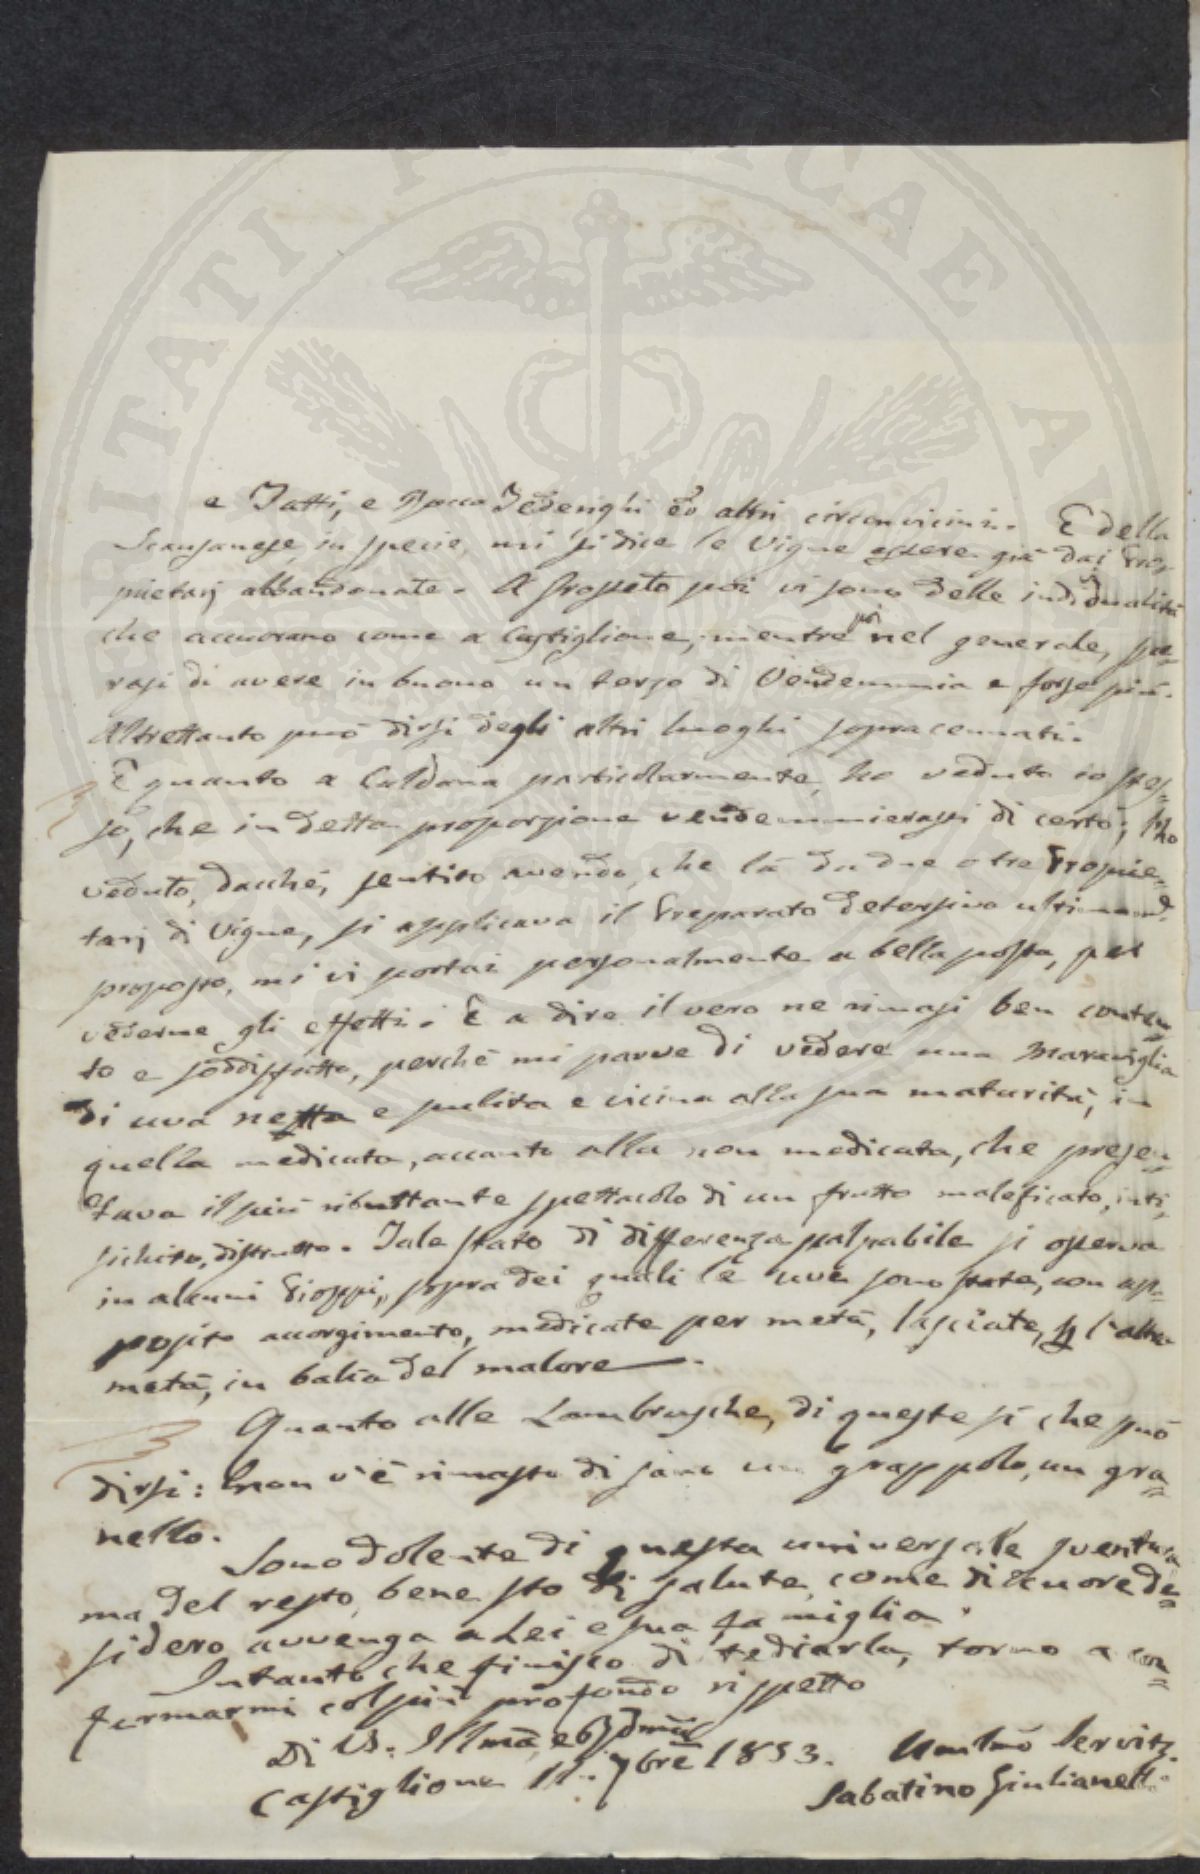 e Tatti, e Rocca Tederighi ed altri circonvicini. E della
Scansanese in specie, mi si dice le Vigne essere già dai Pro-
prietarj abbandonate. A Grosseto poi vi sono delle individualità
che accuorano come a Castiglione, mentre poi nel generale, spe-
rasi di avere in buono un terzo di Vendemmia e forse più.
Altrettanto può dirsi degli altri luoghi sopracennati.
E quanto a Caldana particolarmente, ho veduto io stes-
so, che in detta proporzione vendemmierassi di certo; l'ho
veduto, dacchè, sentito avendo, che là da due o tre Proprie-
tarj di Vigne, si applicava il Preparato detersivo ultimamte
proposto, mi vi portai personalmente a bella posta, per
vederne gli effetti. E a dire il vero ne rimasi ben conten-
to e soddisfatto, perchè mi parve di vedere una maraviglia
di uva netta e pulita e vicina alla sua maturità, in
quella medicata, accanto alla non medicata, che presen-
tava il più ributtante spettacolo di un frutto maleficato, inti-
sichito, distrutto. Tale stato di differenza palpabile si osserva
in alcuni Pioppi, sopra dei quali le uve sono state, con ap-
posito accorgimento, medicate per metà, lasciate, l'altra
metà, in balìa del malore.
Quanto alle Lambrusche, di queste sì che può
dirsi: non v'è rimasto di sano un grappolo, un gra-
nello.
Sono dolente di questa universale sventura
ma del resto, bene sto di salute, come di cuore de-
sidero avvenga a Lei e sua famiglia.
Intanto che finisco di tediarla, torno a con-
fermarmi col più profondo rispetto
Di VS. Illma e
Castiglione 11. 7bre 1853. Umilmo Servitr.
Sabatino Giulianelli
VERITATI PUBLICAE